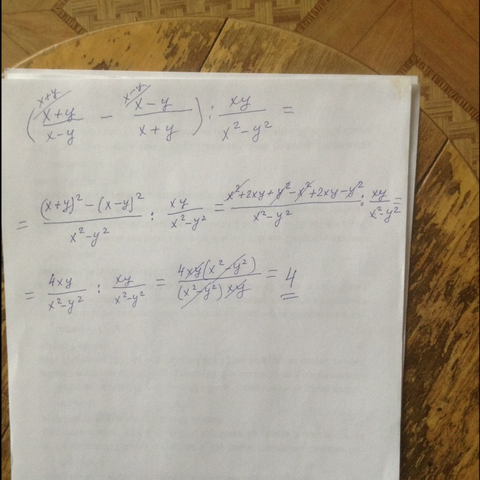 ( (x+y)/(x-y) ^(x+y) - (x-y)/(x+y) ^(x-y) ) : xy/(x²-y²) =
= ((x+y)² - (x-y)²)/(x²-y²) : xy/(x²-y²) = (x²+2xy+y²-x²+2xy-y²)/(x²-y²) : xy/(x²-y²) =
= 4xy/(x²-y²) : xy/(x²-y²) = (4xy(x²-y²))/((x²-y²)xy) = 4